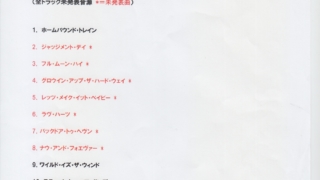 (全トラック未発表音源 *＝未発表曲)
1. ホームバウンド・トレイン
2. ジャッジメント・デイ *
3. フル・ムーン・ハイ *
4. グロウイン・アップ・ザ・ハード・ウェイ *
5. レッツ・メイク・イット・ベイビー *
6. ラヴ・ハーツ *
7. バックドア・トゥ・ヘヴン *
8. ナウ・アンド・フォエヴァー *
9. ワイルド・イズ・ザ・ウィンド